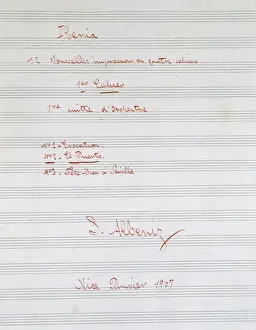 Iberia
12 Nouvelles impressions en quatre cahiers
1er Cahier
1re suitte d'Orchestre
No 1 - Evocation.
No 2 - El Puerto.
No 3 - Fête-Dieu à Séville
I. Albeniz
Nice Janvier 1907